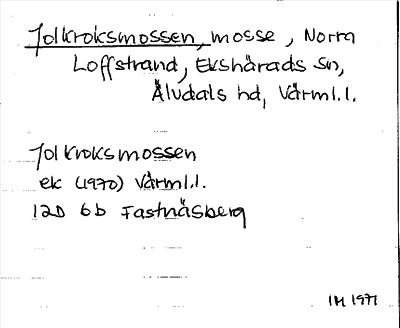 Jolkroksmossen, mosse, Norra
Loffstrand, Ekshärads sn,
Älvdals hd, Värml.l.
Jolkroksmossen
ek (1970) Värml.l.
12D 6b Fastnäsberg
IH 1971